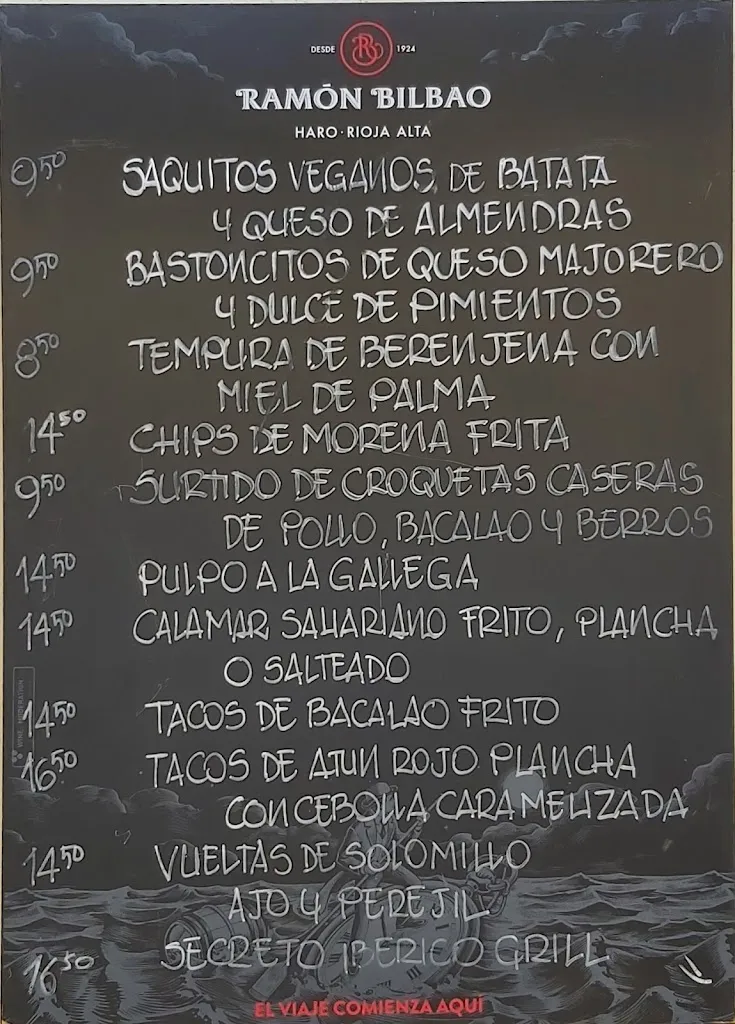 DESDE R 1924
RAMÓN BILBAO
HARO·RIOJA ALTA
9,50 SAQUITOS VEGANOS DE BATATA
Y QUESO DE ALMENDRAS
9,50 BASTONCITOS DE QUESO MAJORERO
Y DULCE DE PIMIENTOS
8,50 TEMPURA DE BERENJENA CON
MIEL DE PALMA
14,50 CHIPS DE MORENA FRITA
9,50 SURTIDO DE CROQUETAS CASERAS
DE POLLO, BACALAO Y BERROS
14,50 PULPO A LA GALLEGA
14,50 CALAMAR SAHARIANO FRITO, PLANCHA
O SALTEADO
14,50 TACOS DE BACALAO FRITO
16,50 TACOS DE ATUN ROJO PLANCHA
CON CEBOLLA CARAMELIZADA
14,50 VUELTAS DE SOLOMILLO
AJO Y PEREJIL
16,50 SECRETO IBERICO GRILL
EL VIAJE COMIENZA AQUÍ
WINE MODERATION